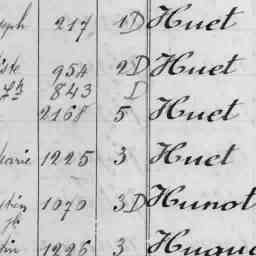 seph 217 1D Huet
iste 954 2D Huet
843 D
2168 5 Huet
Marie 1225 3 Huet
1070 3D Hunot
1226 3